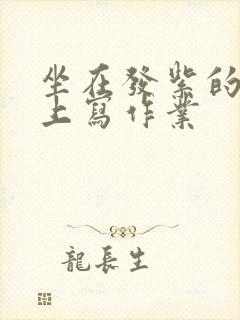 坐在發紫的
上寫作業
龍長生